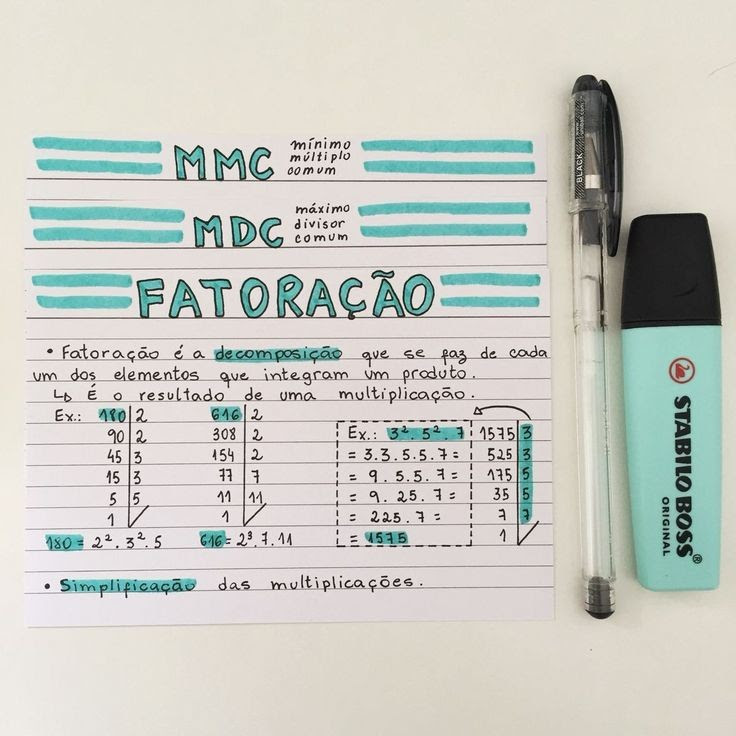 MMC mínimo
múltiplo
comum
MDC máximo
divisor
comum
FATORAÇÃO
• Fatoração é a decomposição que se faz de cada
um dos elementos que integram um produto.
↳ É o resultado de uma multiplicação.
Ex.: 180 2
90 2
45 3
15 3
5 5
1
180 = 2² . 3² . 5
616 2
308 2
154 2
77 7
11 11
1
616 = 2³ . 7 . 11
Ex.: 3² . 5² . 7
= 3.3.5.5.7 =
= 9 . 5 . 5 . 7 =
= 9 . 25 . 7 =
= 225 . 7 =
= 1575
1575 3
525 3
175 5
35 5
7 7
1
• Simplificação das multiplicações.
BLACK
STABILO BOSS
ORIGINAL